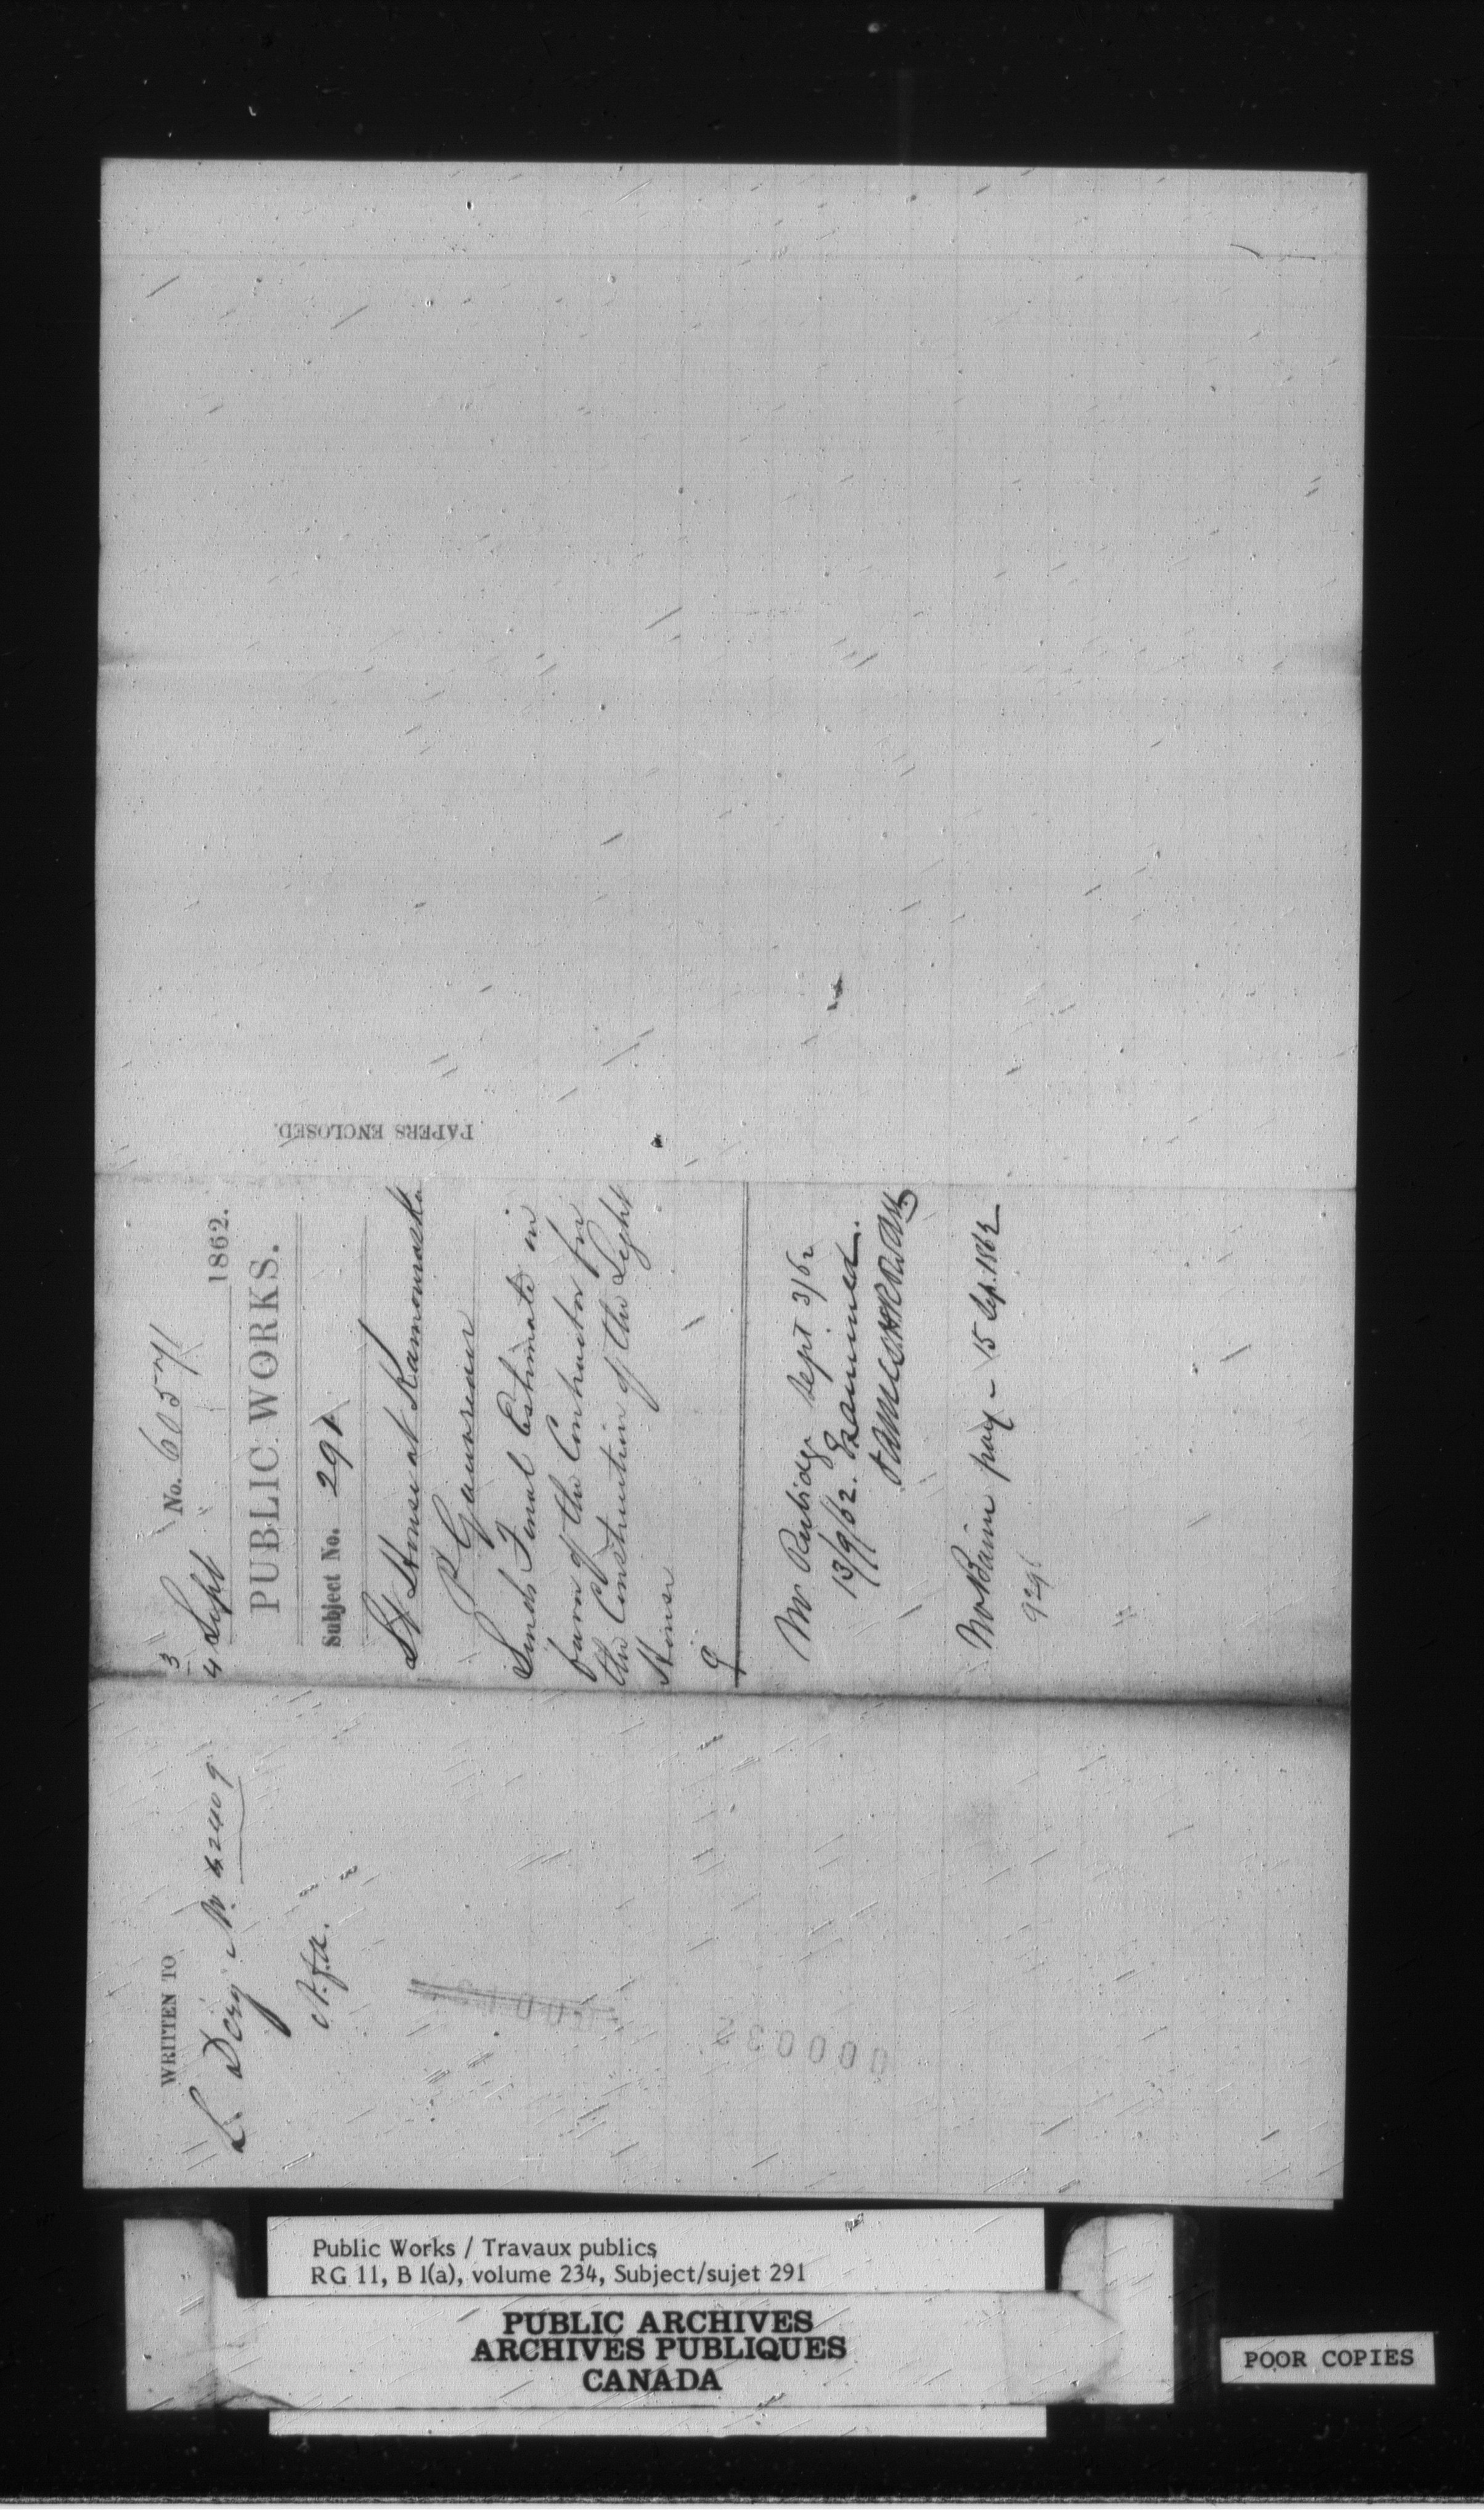 3
No. 60571
4 Sept 1862.
PUBLIC WORKS.
Subject No. 291
Lt House at Kamouraska
P Gauvreau
Sends Final Estimate in
favor of the Contractor for
the Construction of the Light
House
9
Mr Rubidge Sept 3/62
13/9/62. Examined.
Mr Baine pay - 15 Sep. 1862
PAPERS ENCLOSED.
WRITTEN TO
L. Dery
000032
Public Works / Travaux publics
RG 11, B 1(a), volume 234, Subject/sujet 291
PUBLIC ARCHIVES
ARCHIVES PUBLIQUES
CANADA
POOR COPIES